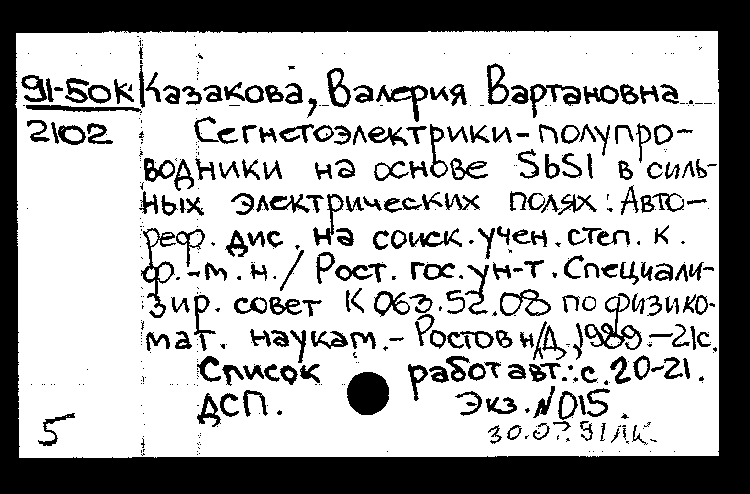 91-50к Казакова, Валерия Вартановна.
2102 Сегнетоэлектрики-полупро-
водники на основе SbSI в силь-
ных электрических полях: Авто-
реф. дис. на соиск. учен. степ. к.
ф.-м.н. / Рост. гос. ун-т. Специали-
зир. совет К 063.52.08 по физико-
мат. наукам.- Ростов н/Д, 1989.-21с.
Список работ авт.: с. 20-21.
ДСП. Экз. N 015.
5 30.07.91 ЛК.